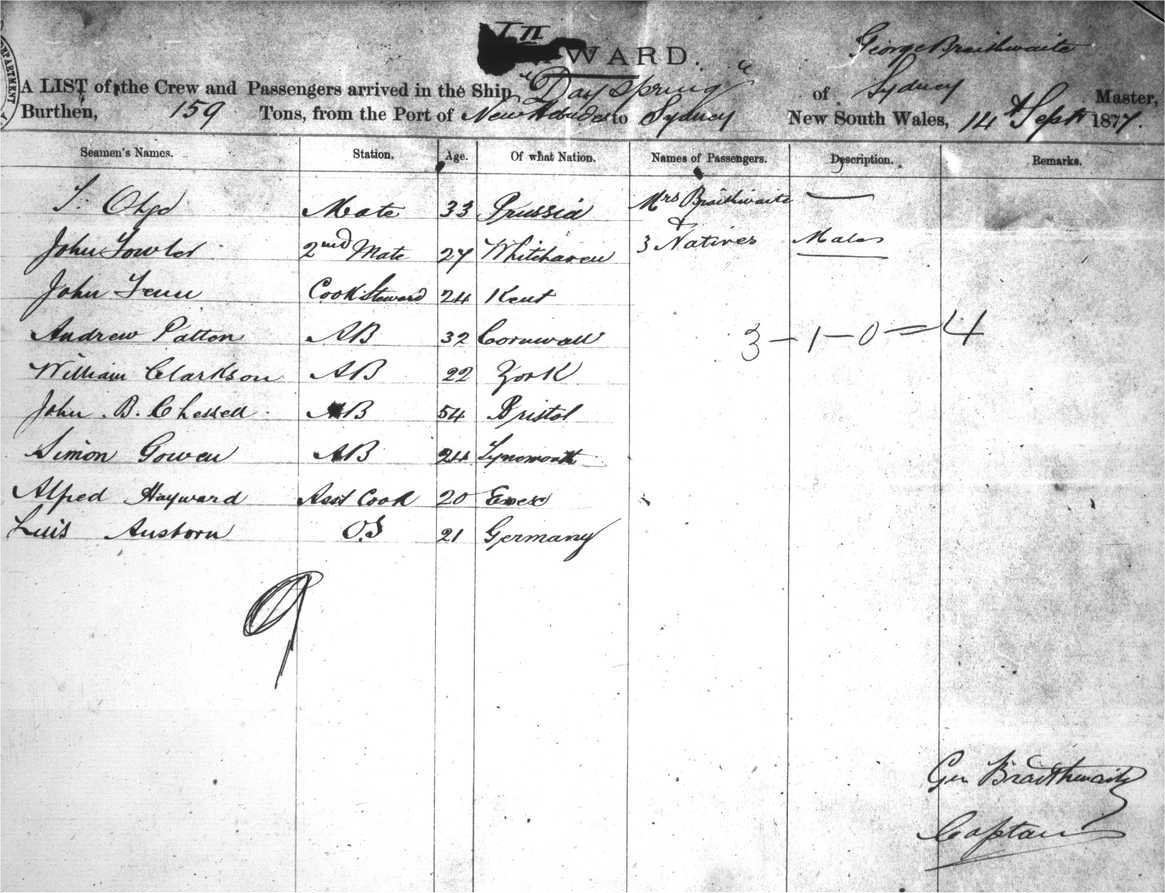 IN WARD.
George Braithwaite
A LIST of the Crew and Passengers arrived in the Ship "Day Spring" of Sydney Master,
Burthen, 159 Tons, from the Port of New Hebrides to Sydney New South Wales, 14th Sept 1877.
Seamen's Names. Station. Age. Of what Nation. Names of Passengers. Description. Remarks.
Mate 33 Prussia Mrs Braithwaite —
&
John Fowler 2nd Mate 27 Whitehaven 3 Natives Males
John Fenn Cook Steward 24 Kent
Andrew Patton AB 32 Cornwall 3-1-0=4
William Clarkson AB 22 York
John B. AB 54 Bristol
Simon Gowen AB 24
Alfred Hayward Asst Cook 20
Luis Ausborn OS 21 Germany
9
Geo Braithwaite
Captain